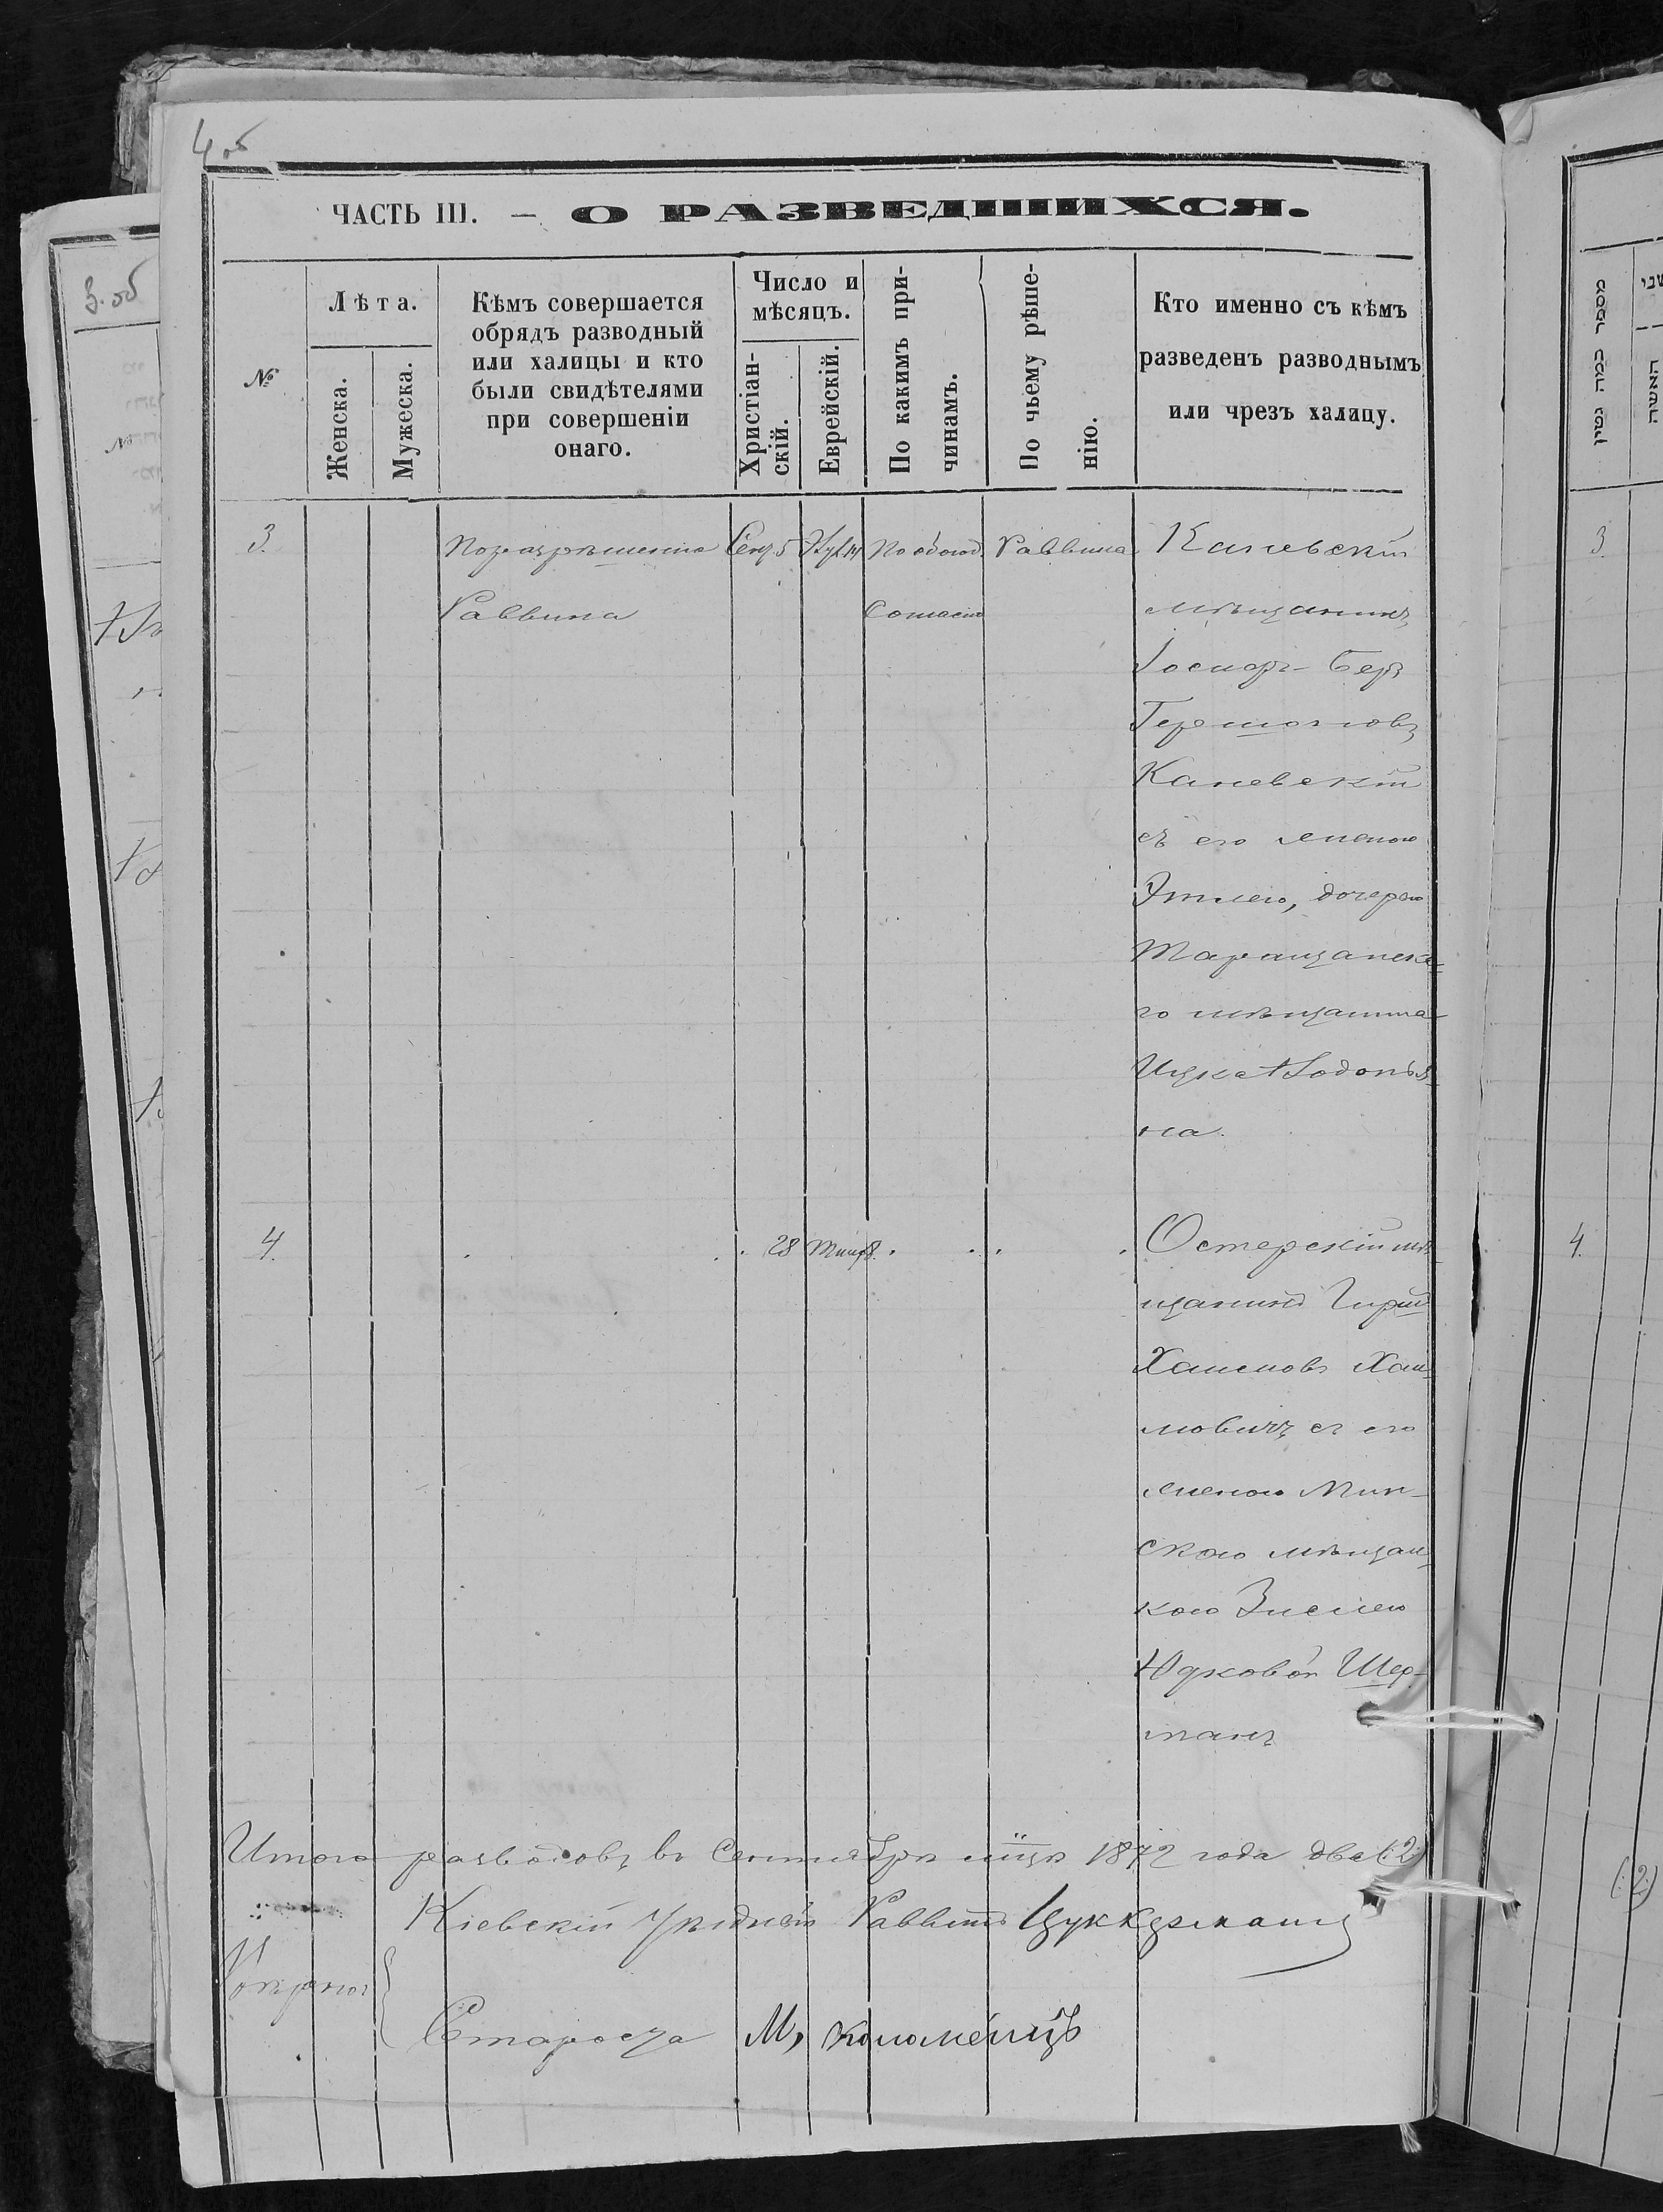 4 об
ЧАСТЬ III. — О РАЗВЕДШИХСЯ.
№
Лѣта.
Женска.
Мужеска.
Кѣмъ совершается
обрядъ разводный
или халицы и кто
были свидѣтелями
при совершеніи
онаго.
Число и
мѣсяцъ.
Христіан-
скій.
Еврейскій.
По какимъ при-
чинамъ.
По чьему рѣше-
нію.
Кто именно съ кѣмъ
разведенъ разводнымъ
или чрезъ халицу.
3.
По разрѣшенію
Раввина
Сен 5
По обоюд.
Согласію
Раввина
Каневскій
мѣщанинъ
Іосифъ-Беръ
Гершоновъ
Каневскій
съ его женою
Этлею, дочерью
Таращанска-
го мѣщанина
Ицка Водопья-
на.
4.
28
Тиш 8.
Остерскій мѣ-
щанинъ Гирш
Хаимовъ Хаи-
мовичъ съ его
женою Мин-
скою мѣщан-
кою Зислею
Юдковой Шер-
манъ
Итого разводовъ въ Сентябрѣ мцѣ 1872 года два (2)
Кіевскій Уѣздный Раввинъ Цуккерманъ
Староста М. Коломеецъ
3. об
מספר כמה גטין
האשה
3.
4.
(2)